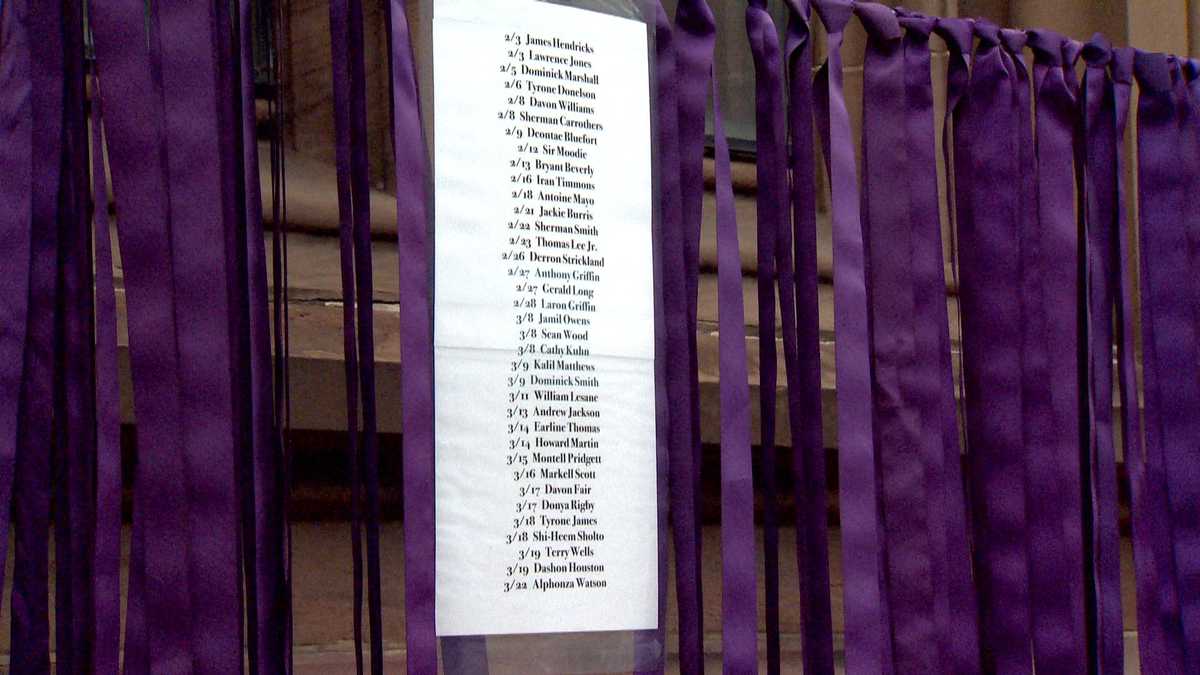 2/3 James Hendricks
2/3 Lawrence Jones
2/5 Dominick Marshall
2/6 Tyrone Donelson
2/8 Davon Williams
2/8 Sherman Carrothers
2/9 Deontae Bluefort
2/12 Sir Moodie
2/13 Bryant Beverly
2/16 Iran Timmons
2/18 Antoine Mayo
2/21 Jackie Burris
2/22 Sherman Smith
2/23 Thomas Lee Jr.
2/26 Derron Strickland
2/27 Anthony Griffin
2/27 Gerald Long
2/28 Laron Griffin
3/8 Jamil Owens
3/8 Sean Wood
3/8 Cathy Kuhn
3/9 Kalil Matthews
3/9 Dominick Smith
3/11 William Lesane
3/13 Andrew Jackson
3/14 Earline Thomas
3/14 Howard Martin
3/15 Montell Pridgett
3/16 Markell Scott
3/17 Davon Fair
3/17 Donya Rigby
3/18 Tyrone James
3/18 Shi-Heem Sholto
3/19 Terry Wells
3/19 Dashon Houston
3/22 Alphonza Watson